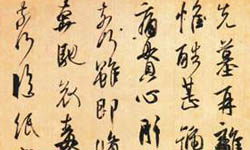 先墓再離
惟酷甚號
痛貫心肝
奈何雖即脩
奔馳哀毒
奈何臨紙